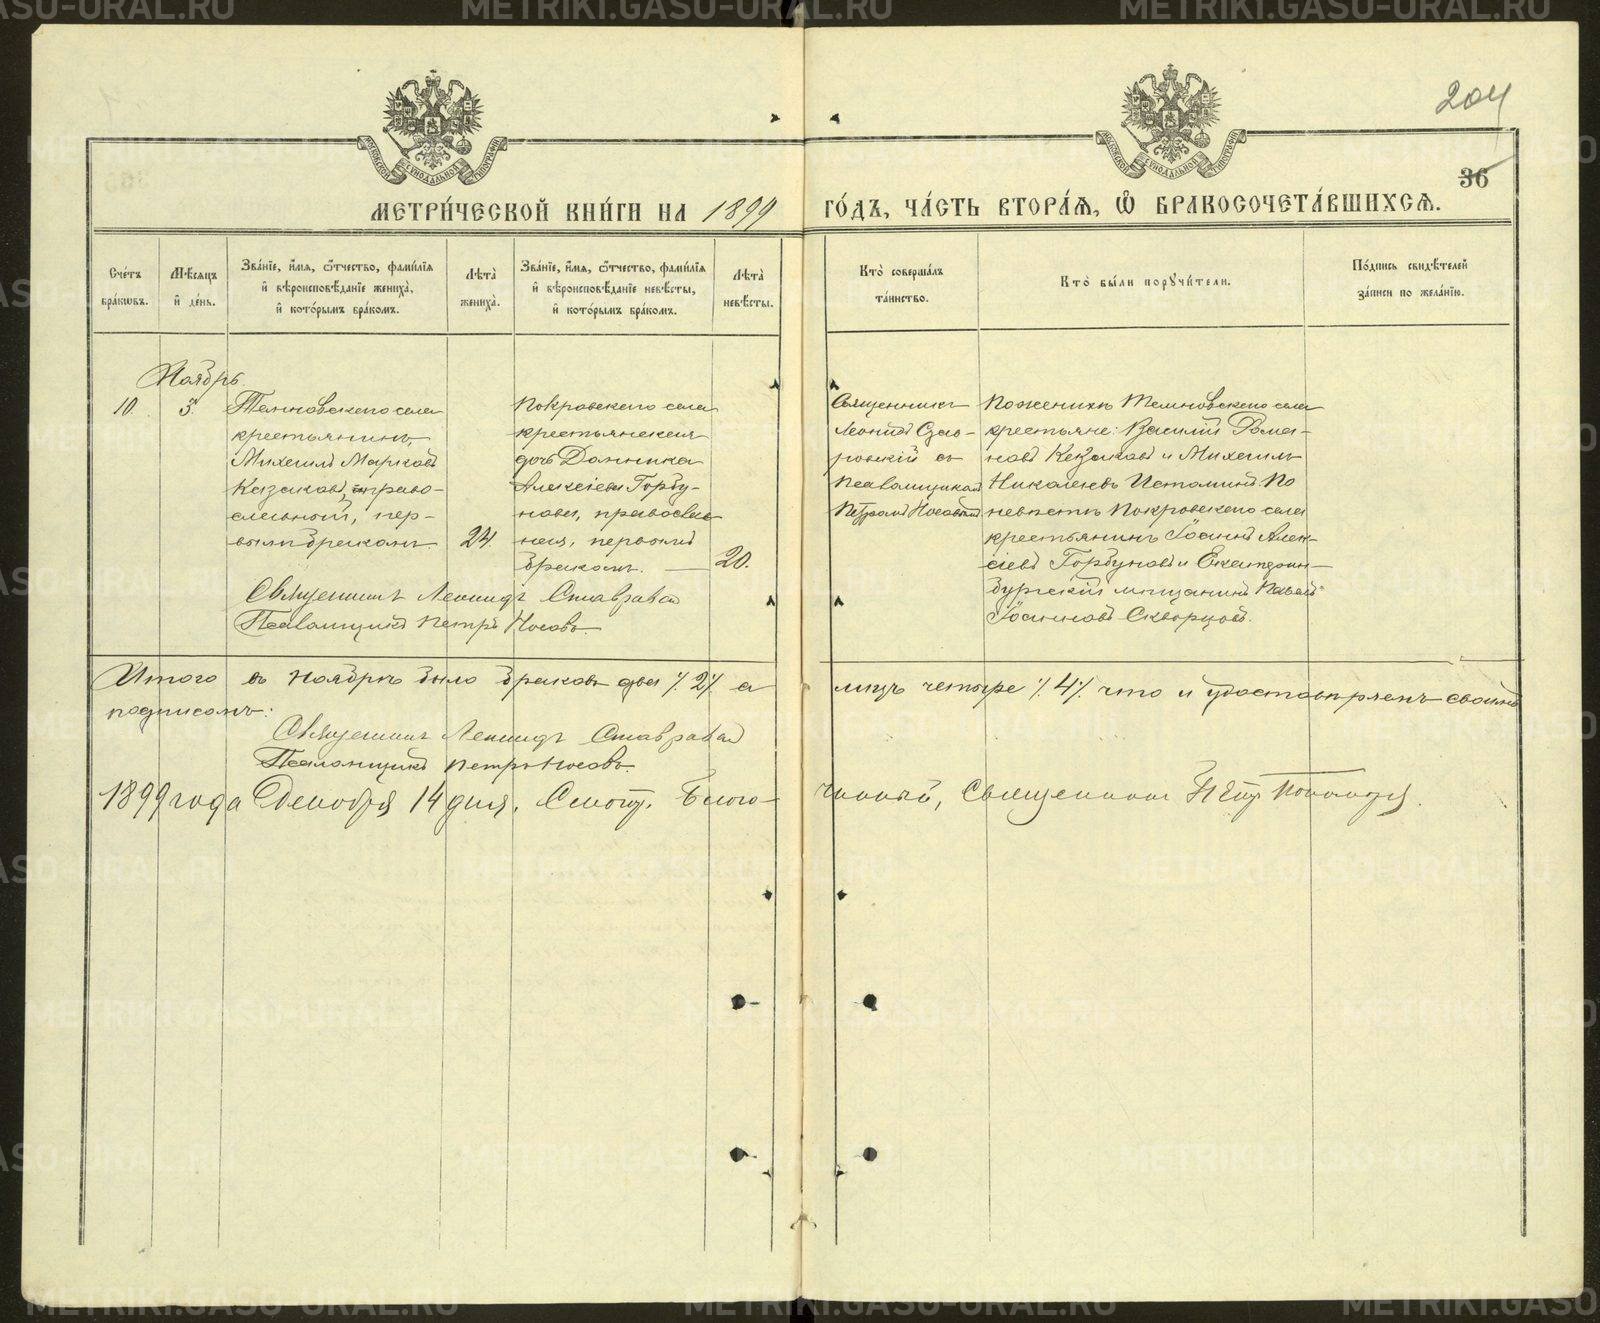 204
36
МОСКОВСКОЙ СѴНОДАЛЬНОЙ ТИПОГРАФІИ
МОСКОВСКОЙ СѴНОДАЛЬНОЙ ТИПОГРАФІИ
МЕТРИ́ЧЕСКОЙ КНИ́ГИ НА 1899 ГО́ДЪ, ЧА́СТЬ ВТОРА́Я, Ѡ БРАКОСОЧЕТА́ВШИХСЯ.
Сче́тъ
бра́ковъ.
Мѣ́сяцъ
и҆ де́нь.
Зва́нїе, и҆́мя, ѻ҆́тчество, фами́лїя
и҆ вѣроисповѣ́данїе жениха̀,
и҆ кото́рымъ бра́комъ.
Лѣ́та
жениха̀.
Зва́нїе, и҆́мя, ѻ҆́тчество, фами́лїя
и҆ вѣроисповѣ́данїе невѣ́сты,
и҆ кото́рымъ бра́комъ.
Лѣ́та
невѣ́сты.
Кто̀ соверша́лъ
та́инство.
Кто̀ бы́ли поручи́тели.
По́дпись свидѣ́телей
за́писи по жела́нїю.
Ноябрь
10. 3.
Темновскаго села
крестьянинъ
Михаилъ Марковъ
Казаковъ, право-
славный, пер-
вымъ бракомъ. 24.
Покровскаго села
крестьянская
дочь Домника
Алексіева Горбу-
нова, православ
ная, первымъ
бракомъ. — 20.
Священникъ
Леонидъ Став-
ровскій съ
Псаломщикомъ
Петромъ Носовымъ
По женихѣ Темновскаго села
крестьяне: Василій Рома-
новъ Казаковъ и Михаилъ
Николаевъ Истоминъ. По
невѣстѣ Покровскаго села
крестьянинъ Іоаннъ Алек-
сіевъ Горбуновъ и Екатерин-
бургскій мѣщанинъ Павелъ
Іоанновъ Скворцовъ.
Священникъ Леонидъ Ставровскій
Псаломщикъ Петръ Носовъ.
Итого въ Ноябрѣ было браковъ два /.2/. а лицъ четыре /.4/. что и удостовѣряемъ своимъ
подписомъ:
Священникъ Леонидъ Ставровскій
Псаломщикъ Петръ Носовъ.
1899 года Декабря 14 дня. Смотр. Благо-чинный, Священникъ Петръ